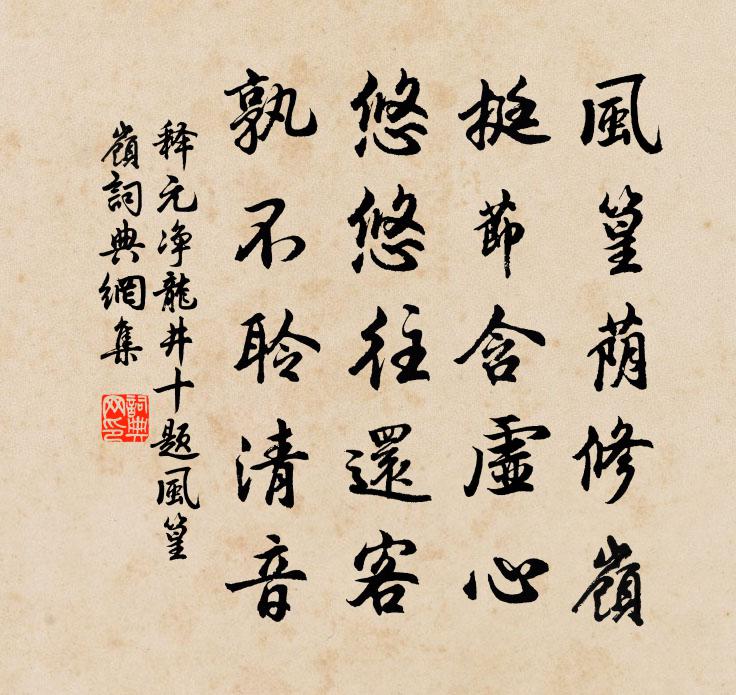 風篁荫修嶺
挺節含虛心
悠悠往還客
孰不聆清音
释元净龍井十题風篁
嶺詞典網集
詞典
网印